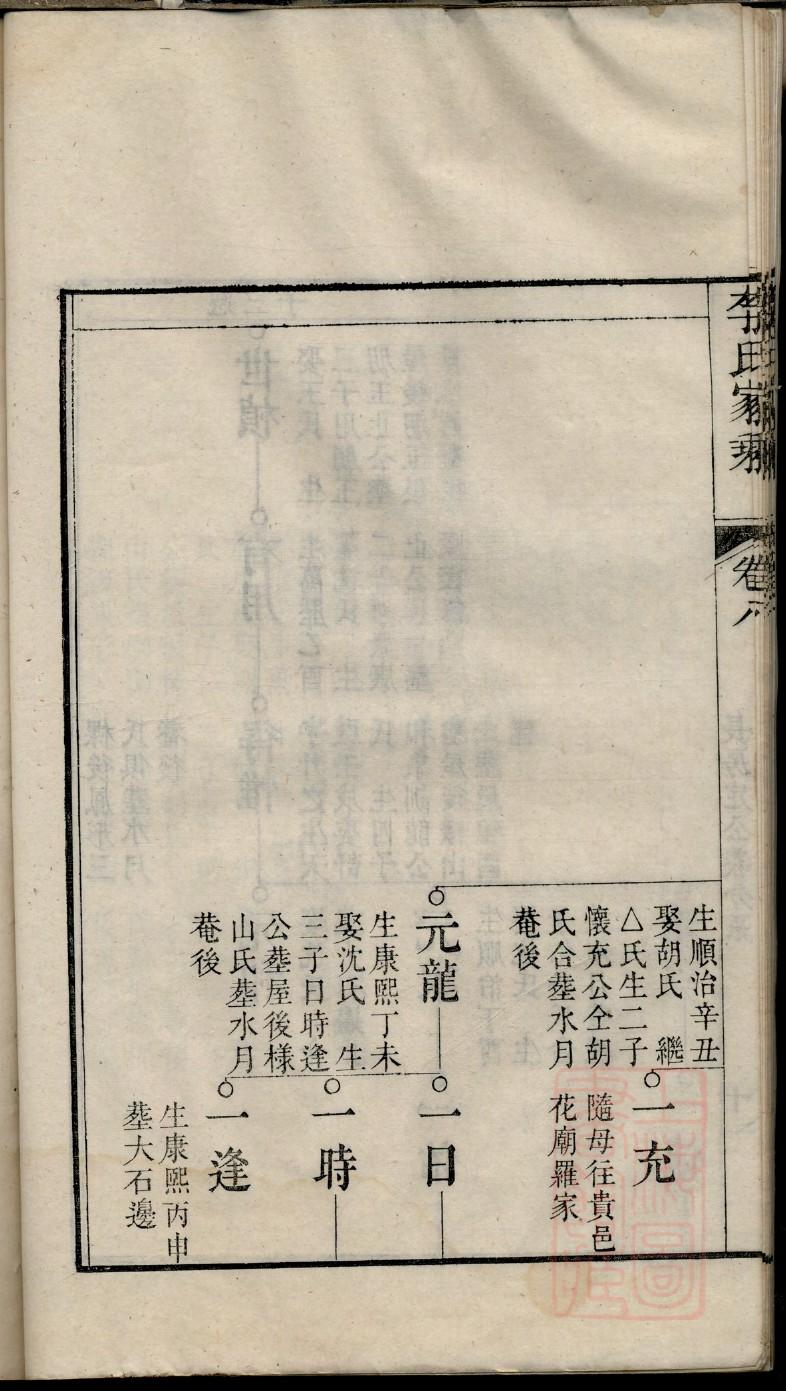 李氏家乘
卷八
生順治辛丑
娶胡氏 繼
△氏生二子
懷充公仝胡
氏合塟水月
菴後
一充
隨母往貴邑
花廟羅家
元龍
生康熙丁未
娶沈氏 生
三子日時逢
公塟屋後樣
山氏塟水月
菴後
一日
一時
一逢
生康熙丙申
塟大石邊